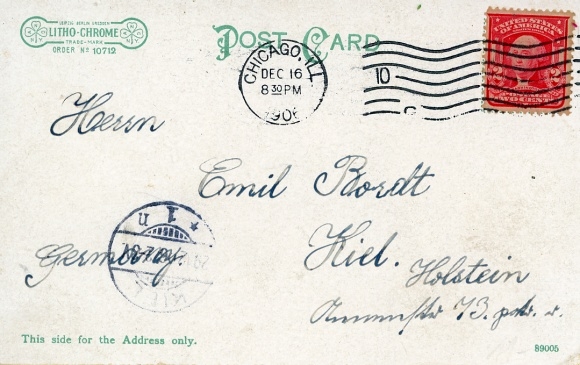 LEIPZIG BERLIN DRESDEN
LITHO-CHROME
TRADE-MARK
ORDER No 10712
N Y
POST CARD
CHICAGO, ILL.
DEC 16
8 30 PM
10
UNITED STATES
OF AMERICA
2 2
TWO CENTS
Herrn
Emil Bordt
* 1 n
Germany.
KIEL
Kiel.
Holstein
73.
This side for the Address only.
89005